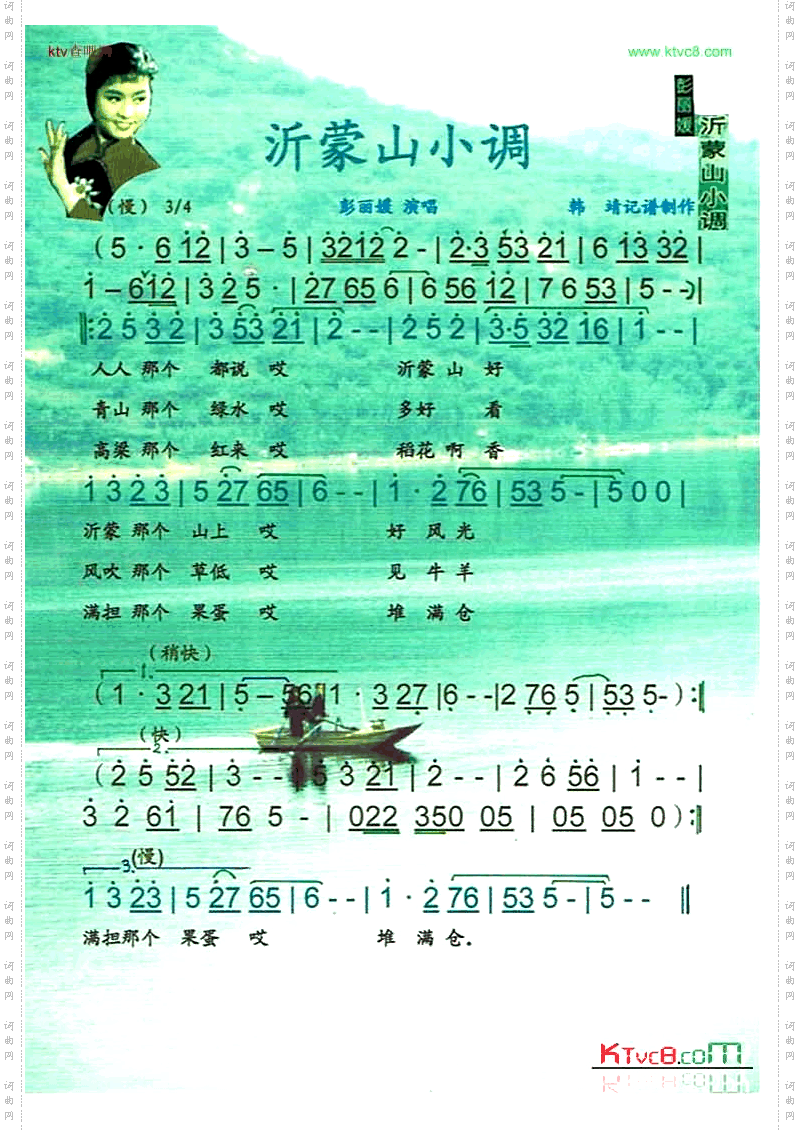 ktv春吧网
www.ktvc8.com
彭丽媛
沂蒙山小调
沂蒙山小调
（慢） 3/4 彭丽媛 演唱 韩 靖记谱制作
( 5 · 6 1̇2̇ | 3̇ – 5̇ | 3̇2̇1̇2̇ 2̇ - | 2̇·3̇ 5̇3̇ 2̇1̇ | 6 1̇3̇ 3̇2̇ |
1̇ – 61̇2̇ | 3̇ 2̇5 · | 2̇7 65 6 | 6 56 1̇2̇ | 7 6 53 | 5 - - ) |
‖: 2̇ 5̇ 3̇ 2̇ | 3̇ 5̇3̇ 2̇1̇ | 2̇ - - | 2̇ 5̇ 2̇ | 3̇·5̇ 3̇2̇ 1̇6 | 1̇ - - |
人人 那个 都说 哎 沂蒙 山 好
青山 那个 绿水 哎 多好 看
高粱 那个 红来 哎 稻花 啊 香
1̇ 3̇ 2̇ 3̇ | 5 2̇7 65 | 6 - - | 1̇ · 2̇ 76 | 53 5 - | 5 0 0 |
沂蒙 那个 山上 哎 好 风 光
风吹 那个 草低 哎 见 牛 羊
满担 那个 果蛋 哎 堆 满 仓
（稍快）
1.
( 1 · 3 21 | 5̣ – 5̣6̣ | 1 · 3 27̣ | 6̣ - - | 2 7̣6̣ 5̣ | 5̣3̣ 5̣ - ) :‖
（快）
2.
( 2̇ 5̇ 5̇2̇ | 3̇ - - | 5̇ 3̇ 2̇1̇ | 2̇ - - | 2̇ 6 56 | 1̇ - - |
3̇ 2̇ 61̇ | 76 5 - | 022 350 05 | 05 05 0 ) :‖
3. (慢)
1̇ 3̇ 2̇3̇ | 5 2̇7 65 | 6 - - | 1̇ · 2̇ 76 | 53 5 - | 5 - - ‖
满担那个 果蛋 哎 堆 满 仓。
KTvc8.com
词曲网